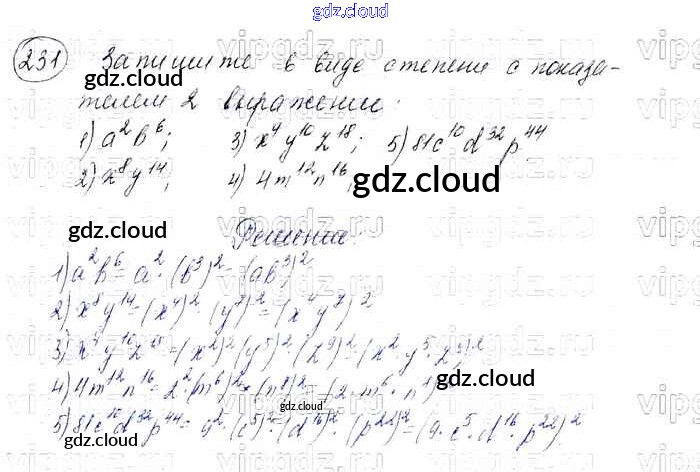 gdz.cloud
231 Запишите в виде степени с показа-
телем 2 выражение:
1) a²b⁶; 3) x⁴y¹⁰z¹⁸; 5) 81c¹⁰d³²p⁴⁴
2) x⁸y¹⁴; 4) 4m¹²n¹⁶,
gdz.cloud
gdz.cloud
gdz.cloud
gdz.cloud
Решение.
1) a²b⁶ = a² · (b³)² = (ab³)²
2) x⁸y¹⁴ = (x⁴)² · (y⁷)² = (x⁴y⁷)²
3) x⁴y¹⁰z¹⁸ = (x²)²(y⁵)² · (z⁹)² = (x² · y⁵ · z⁹)²
4) 4m¹²n¹⁶ = 2²(m⁶)² · (n⁸)² = (2 · m⁶ · n⁸)²
5) 81c¹⁰d³²p⁴⁴ = 9² · (c⁵)² · (d¹⁶)² · (p²²)² = (9 · c⁵ · d¹⁶ · p²²)²
gdz.cloud
gdz.cloud
gdz.cloud